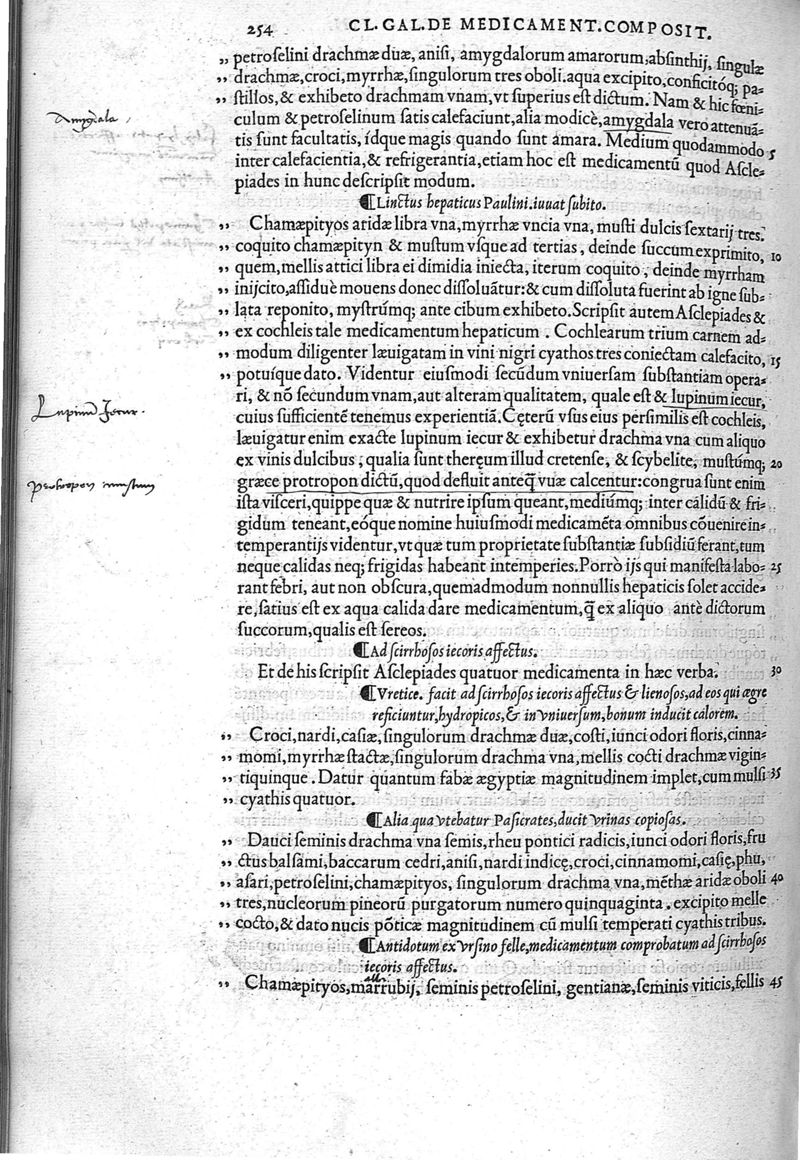 254 CL. GAL. DE MEDICAMENT. COMPOSIT.
„ petroselini drachmæ duæ, anisi, amygdalorum amarorum, absinthij, singulæ
„ drachmæ, croci, myrrhæ, singulorum tres oboli. aqua excipito, conficitóq; pa-
„ stillos, & exhibeto drachmam vnam, vt superius est dictum. Nam & hic fœni-
Amygdala
culum & petroselinum satis calefaciunt, alia modicè, amygdala vero attenuã-
tis sunt facultatis, ídque magis quando sunt amara. Medium quodammodo 5
inter calefacientia, & refrigerantia, etiam hoc est medicamentũ quod Ascle-
piades in hunc descripsit modum.
¶ Linctus hepaticus Paulini. iuuat subito.
„ Chamæpityos aridæ libra vna, myrrhæ vncia vna, musti dulcis sextarij tres.
„ coquito chamæpityn & mustum vsque ad tertias, deinde succum exprimito, 10
„ quem, mellis attici libra ei dimidia iniecta, iterum coquito, deinde myrrham
„ inijcito, assiduè mouens donec dissoluãtur: & cum dissoluta fuerint ab igne sub-
„ lata reponito, mystrúmq; ante cibum exhibeto. Scripsit autem Asclepiades &
„ ex cochleis tale medicamentum hepaticum. Cochlearum trium carnem ad-
„ modum diligenter læuigatam in vini nigri cyathos tres coniectam calefacito, 15
„ potuíque dato. Videntur eiusmodi secũdum vniuersam substantiam opera-
ri, & nõ secundum vnam, aut alteram qualitatem, quale est & lupinum iecur,
Lupinũ Jecur.
cuius sufficientẽ tenemus experientiã. Cęterũ vsus eius persimilis est cochleis,
læuigatur enim exacte lupinum iecur & exhibetur drachma vna cum aliquo
ex vinis dulcibus, qualia sunt theręum illud cretense, & scybelite, mustúmq; 20
protropon mustum
græce protropon dictũ, quod defluit anteq̃ vuæ calcentur: congrua sunt enim
ista visceri, quippe quæ & nutrire ipsum queant, mediúmq; inter calidũ & fri-
gidum teneant, eóque nomine huiusmodi medicamẽta omnibus cõuenire in-
temperantijs videntur, vt quæ tum proprietate substantiæ subsidiũ ferant, tum
neque calidas neq; frigidas habeant intemperies. Porrò ijs qui manifesta labo- 25
rant febri, aut non obscura, quemadmodum nonnullis hepaticis solet accide-
re, satius est ex aqua calida dare medicamentum, q̃ ex aliquo antè dictorum
succorum, qualis est sereos.
¶ Ad scirrhosos iecoris affectus.
Et de his scripsit Asclepiades quatuor medicamenta in hæc verba. 30
¶ Vretice. facit ad scirrhosos iecoris affectus & lienosos, ad eos qui ægre
reficiuntur, hydropicos, & in vniuersum, bonum inducit calorem.
„ Croci, nardi, casiæ, singulorum drachmæ duæ, costi, iunci odori floris, cinna-
„ momi, myrrhæ stactæ, singulorum drachma vna, mellis cocti drachmæ vigin-
„ tiquinque. Datur quantum fabæ ægyptiæ magnitudinem implet, cum mulsi 35
„ cyathis quatuor.
¶ Alia qua vtebatur Pasicrates, ducit vrinas copiosas.
„ Dauci seminis drachma vna semis, rheu pontici radicis, iunci odori floris, fru
„ ctus balsami, baccarum cedri, anisi, nardi indicę, croci, cinnamomi, casię, phu,
„ asari, petroselini, chamæpityos, singulorum drachma vna, mẽthæ aridæ oboli 40
„ tres, nucleorum pineorũ purgatorum numero quinquaginta. excipito melle
„ cocto, & dato nucis põticæ magnitudinem cũ mulsi temperati cyathis tribus.
¶ Antidotum ex vrsino felle, medicamentum comprobatum ad scirrhosos
iecoris affectus.
„ Chamæpityos, marrubij, seminis petroselini, gentianæ, seminis viticis, fellis 45